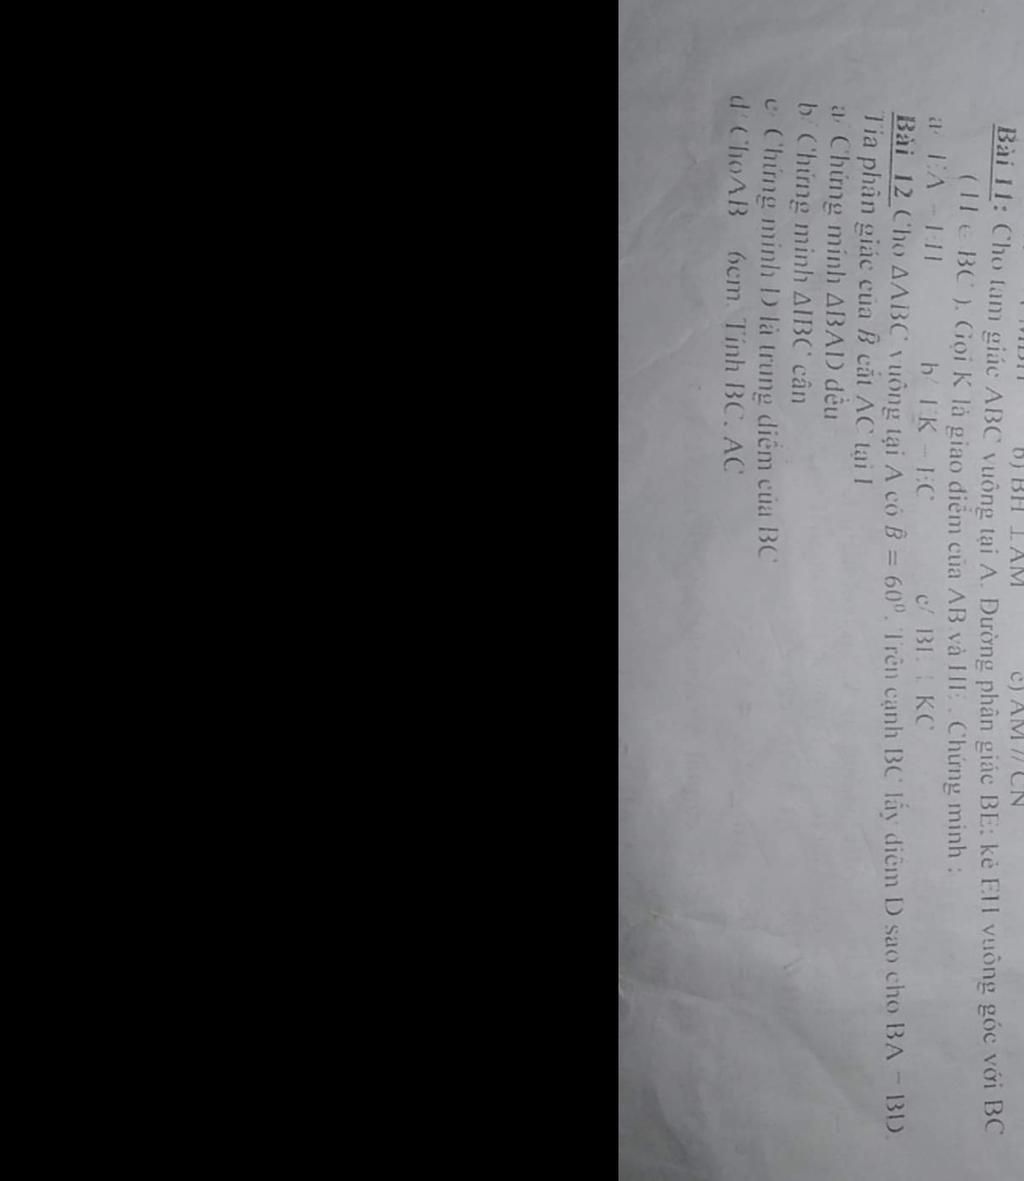 b) BH ⊥ AM c) AM // CN
Bài 11: Cho tam giác ABC vuông tại A. Đường phân giác BE; kẻ EH vuông góc với BC
( H ∈ BC ). Gọi K là giao điểm của AB và HE . Chứng minh :
a/ EA = EH b/ EK = EC c/ BE ⊥ KC
Bài 12 Cho ΔABC vuông tại A có B̂ = 60⁰ . Trên cạnh BC lấy điểm D sao cho BA = BD.
Tia phân giác của B̂ cắt AC tại I
a/ Chứng minh ΔBAD đều
b/ Chứng minh ΔIBC cân
c/ Chứng minh D là trung điểm của BC
d/ Cho AB = 6cm. Tính BC, AC